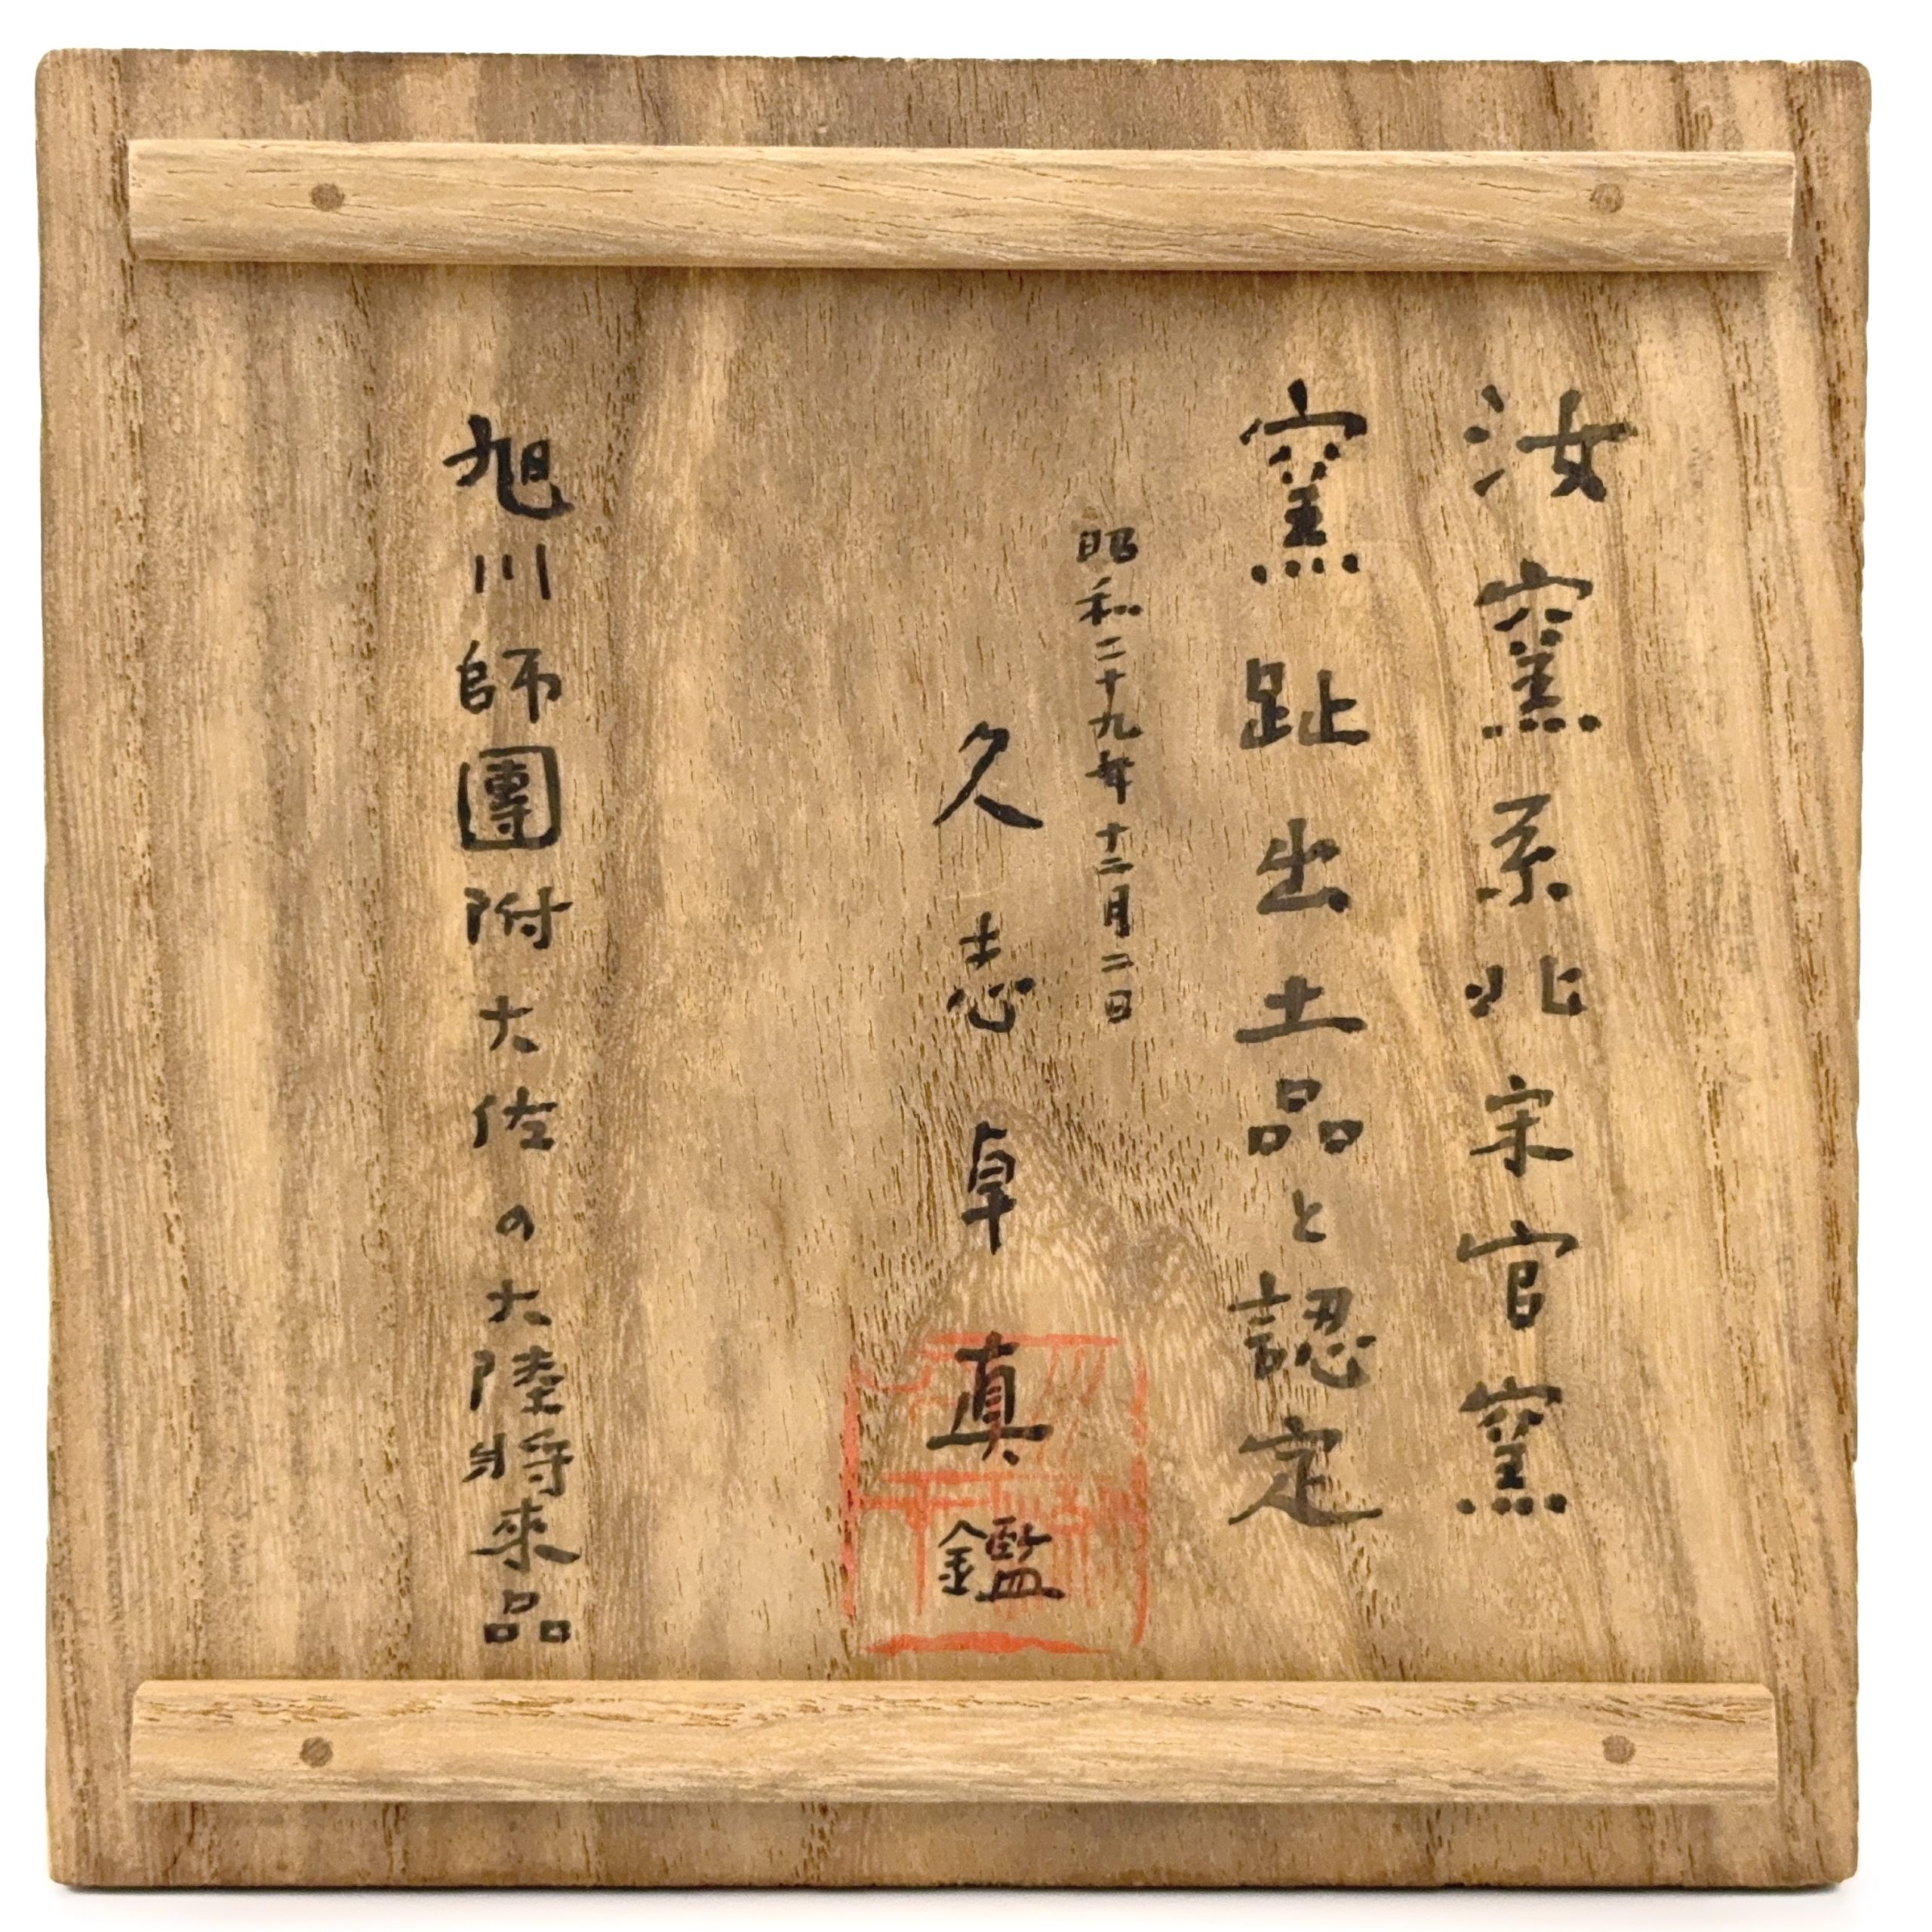 汝窯系北宋官窯
窯趾出土品と認定
昭和二十九年十二月二日
久志卓真鑑
旭川師團附大佐の大陸將来品